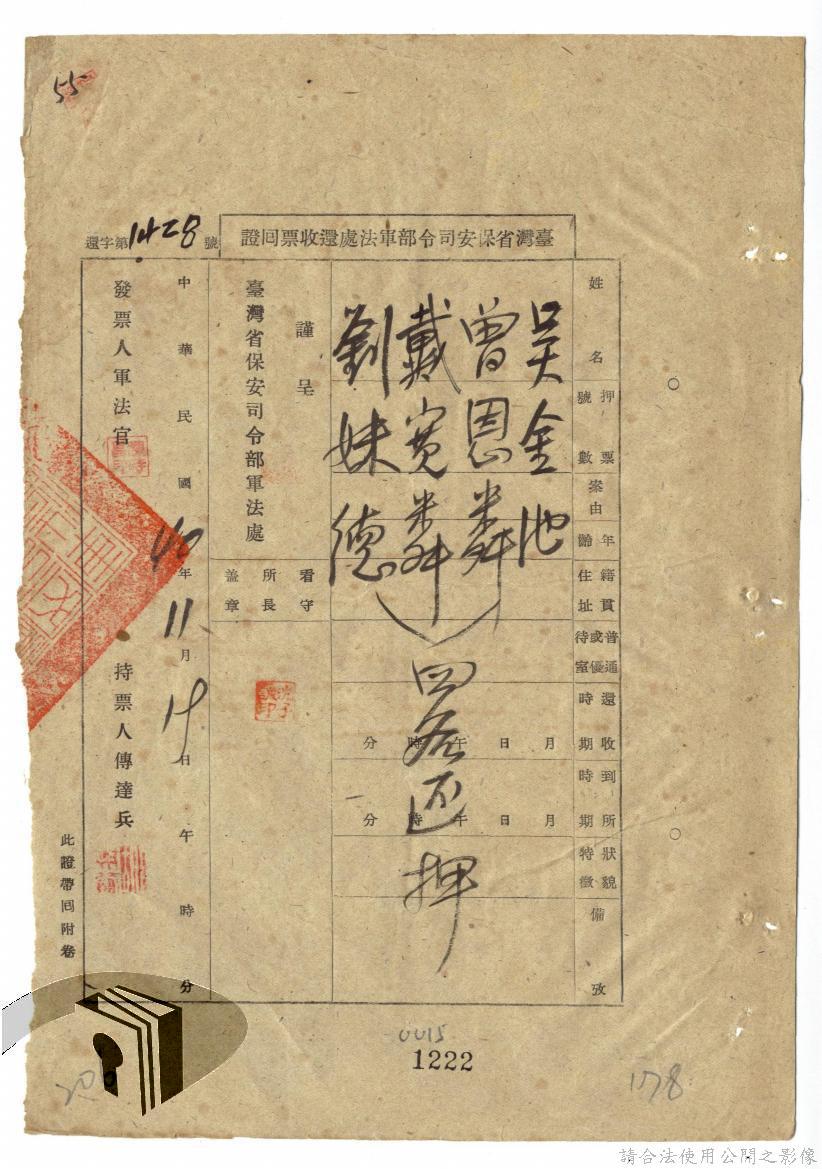 55
臺灣省保安司令部軍法處還收票回證
還字第1428號
姓名
押票號數
案由
年齡
籍貫住址
普通或優待室
還收時期
到所時期
狀貌特徵
備攷
吳金池
曾恩粦
戴寬粦
劉妹德
四名还押
月日午時分
月日午時分
謹呈
臺灣省保安司令部軍法處
看守所長蓋章
中華民國40年11月19日午時分
發票人軍法官
持票人傳達兵
此證帶回附卷
0015
1222
178
請合法使用公開之影像